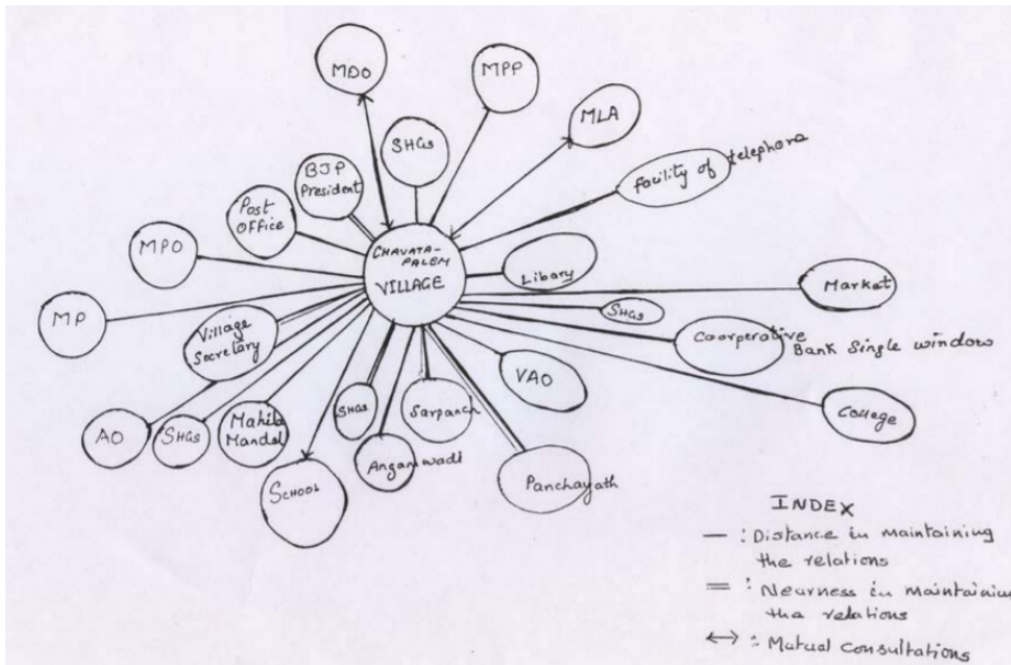 MDO
MPP
MLA
SHGs
facility of telephora
BJP
President
Post
OFFice
MPO
CHAVATA-
PALEM
VILLAGE
Libary
Market
MP
SHGs
Village
Secretary
Coorperative
Bank Single window
VAO
College
AO
SHGs
Mahila
Mandal
SHGs
Sarpanch
Anganwadi
SCHOOL
Panchayath
INDEX
— : Distance in maintaining
the relations
= : Nearness in maintaining
tha relations
↔ : Mutual consultations